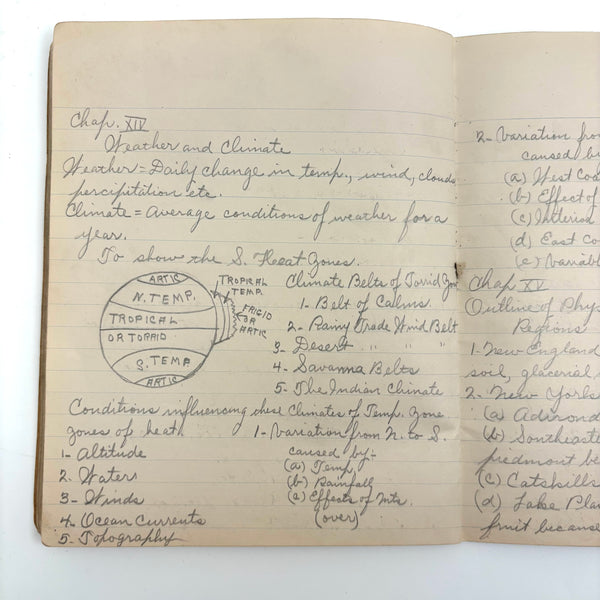 Chap. XIV
Weather and Climate
Weather = Daily change in temp., wind, clouds
percipitation etc.
Climate = Average conditions of weather for a
year.
To show the 5 Heat Zones.
ARTIC
N. TEMP.
TROPICAL
OR TORRID
S. TEMP
ARTIC
TROPICAL
TEMP.
FRIGID
OR
ARTIC
Climate Belts of Torrid Zone
1- Belt of Calms.
2- Rainy Trade Wind Belt
3- Desert " " "
4- Savanna Belts
5- The Indian Climate
Conditions influencing these
zones of heat
1- Altitude
2. Water
3- Winds
4- Ocean Currents
5- Topography
Climates of Temp. Zone
1- Variation from N. to S.
caused by:-
(a) Temp
(b) Rainfall
(c) Effects of Mts.
(over)
2- Variation from
caused by
(a) West Coa
(b) Effect of
(c) Interior
(d) East Co
(e) Variabl
Chap XV
Outline of Phys
Regions
1- New England
soil, glacerial
2- New York
(a) Adirond
(b) Southeaste
piedmont be
(c) Catskills
(d) Lake Plai
fruit because